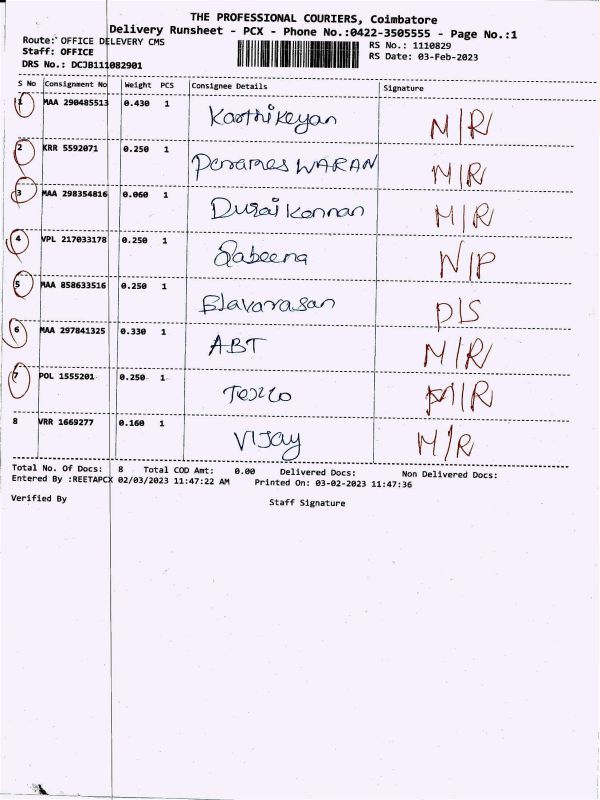 THE PROFESSIONAL COURIERS, Coimbatore
Delivery Runsheet - PCX - Phone No.:0422-3505555 - Page No.:1
Route: OFFICE DELEVERY CMS
RS No.: 1110829
Staff: OFFICE
RS Date: 03-Feb-2023
DRS No.: DCJB111082901
S No Consignment No Weight PCS Consignee Details Signature
1 MAA 290485513 0.430 1 Karthikeyan M/R
2 KRR 5592071 0.250 1 ParamesWARAN M/R
3 MAA 298354816 0.060 1 Duraikannan M/R
4 VPL 217033178 0.250 1 Sabeena N/P
5 MAA 858633516 0.250 1 Elavarasan D/S
6 MAA 297841325 0.330 1 ABT M/R
7 POL 1555201 0.250 1 M/R
8 VRR 1669277 0.160 1 VIJay M/R
Total No. Of Docs: 8 Total COD Amt: 0.00 Delivered Docs: Non Delivered Docs:
Entered By :REETAPCX 02/03/2023 11:47:22 AM Printed On: 03-02-2023 11:47:36
Verified By Staff Signature